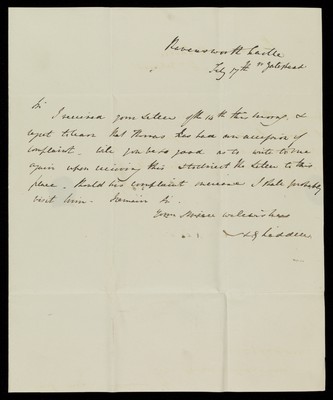 Ravensworth Castle
July 17th nr Gateshead
Sir
I received your Letter of the 14th this morng. &
regret to hear that Thomas has had an accession of
complaint. Will you be so good as to write to me
again upon receiving this & to direct the Letter to this
place. Should his complaint increase I shall probably
visit him. I remain Sir
Your sincere wellwisher
Liddell